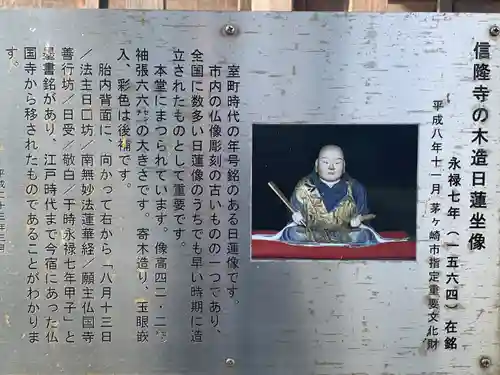 信隆寺の木造日蓮坐像
永禄七年（一五六四）在銘
平成八年十一月 茅ヶ崎市指定重要文化財
室町時代の年号銘のある日蓮像です。
市内の仏像彫刻の古いものの一つであり、
全国に数多い日蓮像のうちでも早い時期に造
立されたものとして重要です。
本堂にまつられています。像高四二・二㌢
袖張六六㌢の大きさです。寄木造り、玉眼嵌
入、彩色は後補です。
胎内背面に、向かって右から「八月十三日
／法主日□坊／南無妙法蓮華経／願主仏国寺
善行坊／日受／敬白／干時永禄七年甲子」と
墨書銘があり、江戸時代まで今宿にあった仏
国寺から移されたものであることがわかりま
す。